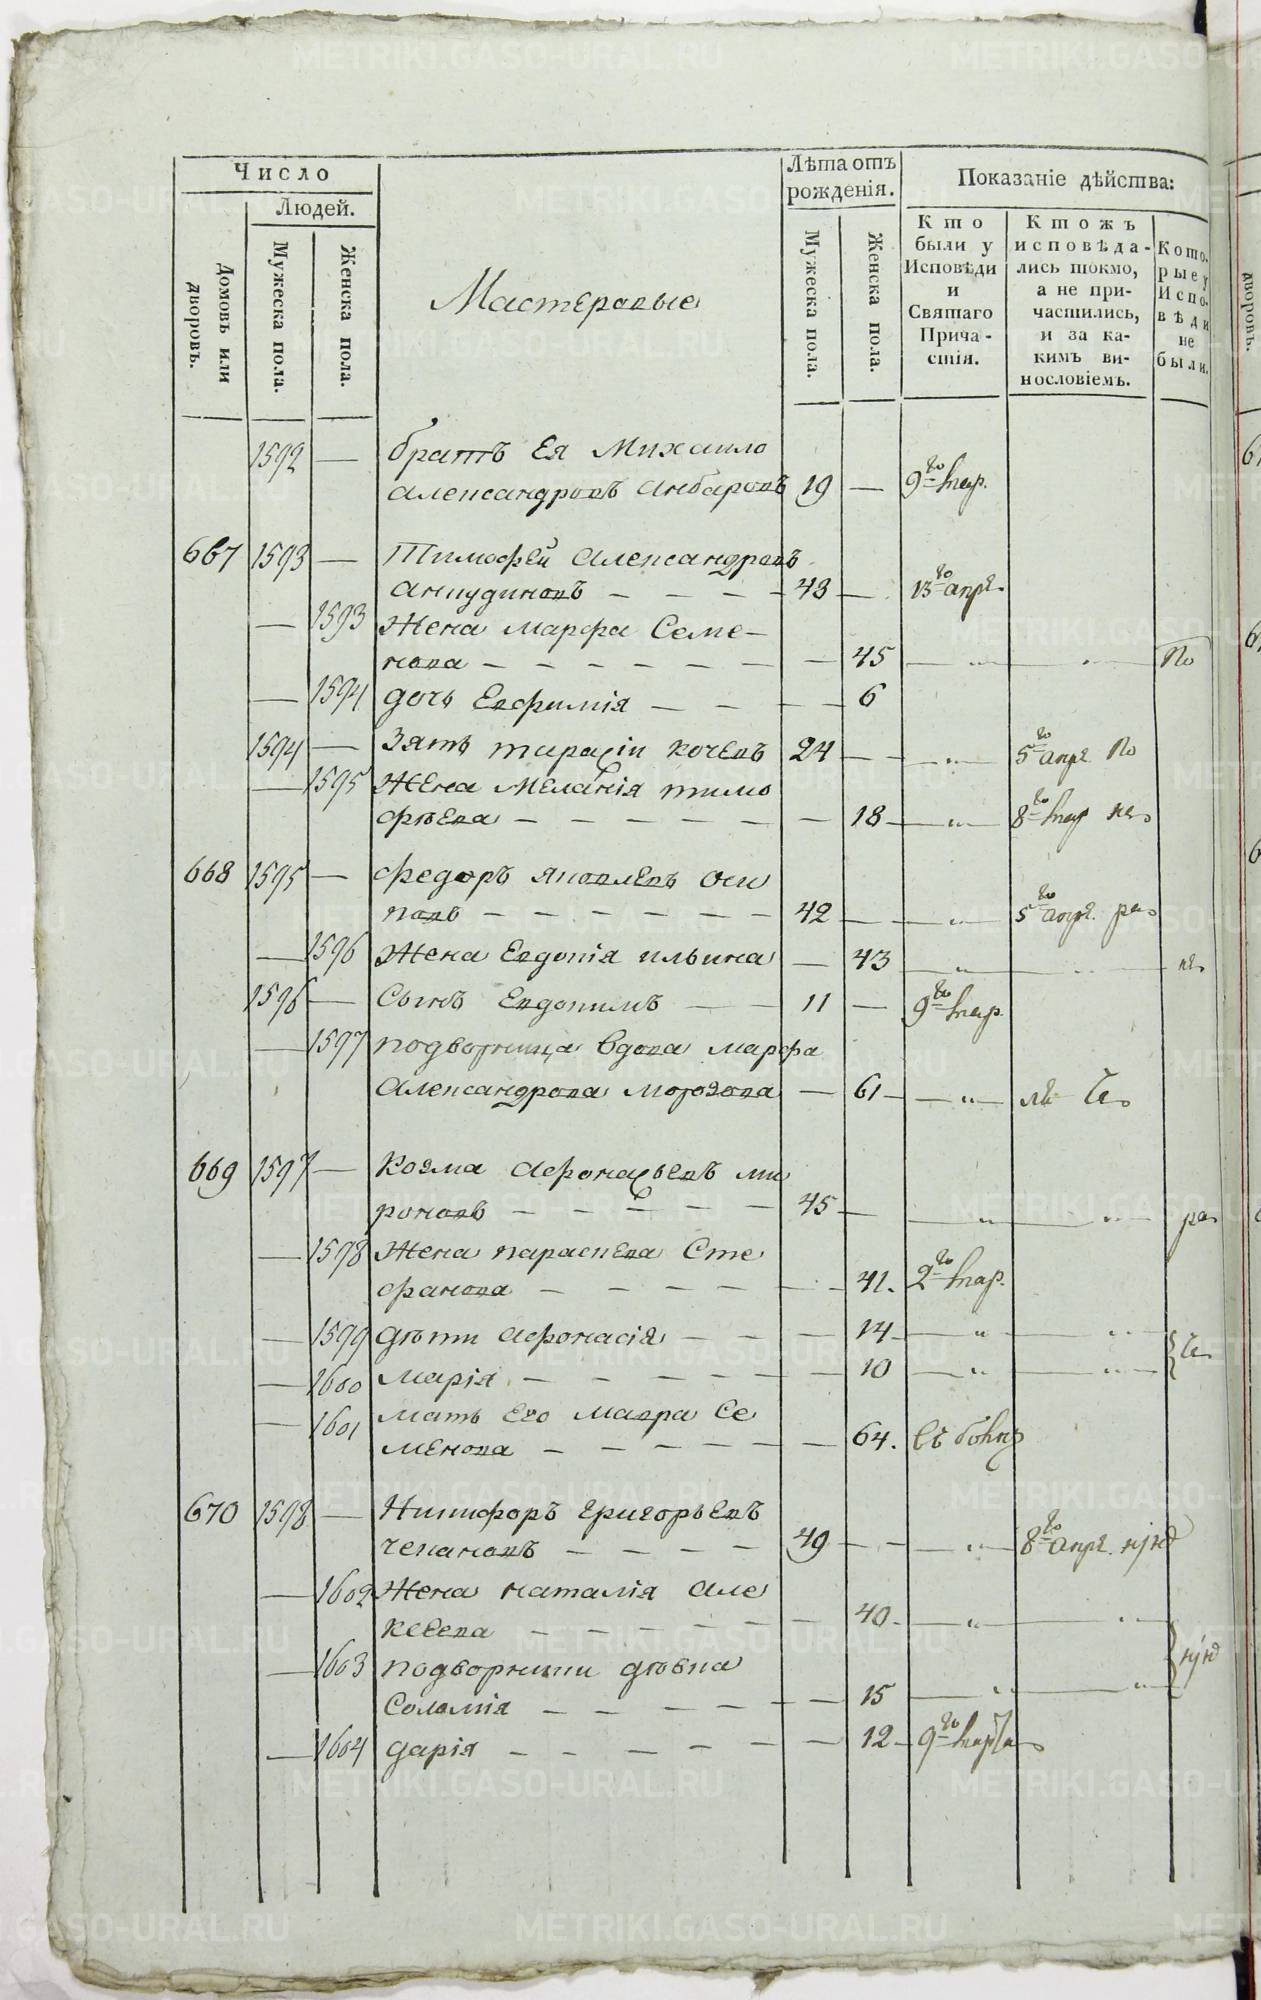 Число
Людей.
Домовъ или дворовъ.
Мужеска пола.
Женска пола.
Мастеровые
Лѣта отъ рожденія.
Мужеска пола.
Женска пола.
Показаніе дѣйства:
Кто были у Исповѣди и Святаго Причастія.
Ктожъ исповѣдались токмо, а не причастились, и за какимъ винословіемъ.
Которые у Исповѣди не были.
1592 — братъ Ея Михаило
Александровъ Анбаровъ 19 — 9го мар.
667 1593 — Тимофей Александровъ
Анпудиновъ — — — — 43 — 13го апрѣ.
— 1593 Жена Марфа Семе-
нова — — — — — — — 45 — „ — „ — по
— 1594 дочь Евфимія — — — — 6
1594 — Зять тарасіи кочевъ 24 — — „ — 5го апрѣ. по
— 1595 Жена Меланія тимо
фѣева — — — — — — — 18 — „ — 8го мар
668 1595 — федоръ яковлевъ оси
повъ — — — — — — — 42 — — „ — 5го апрѣ. ра
— 1596 Жена Евдокія ильина — 43 — „ —
1596 — Сынъ Евдокимъ — — 11 — 9го мар.
— 1597 подворница вдова марфа
Александрова морозова — 61 — „ —
669 1597 — Козма Афонасьевъ ми
роновъ — — — — — 45 — — „ — „ — ра
— 1598 Жена параскева Сте
фанова — — — — — — 41. 2го мар.
— 1599 дѣти Афонасія — — — — 14 — „ — „
— 1600 Марія — — — — — — 10 — „ — „
— 1601 мать Его Мавра Се
менова — — — — — — 64.
670 1598 — Никифоръ григорьевъ
чекановъ — — — — 49 — — „ — 8го апрѣ.
— 1602 Жена наталія але
кѣева — — — — — — 40 — „ — „
— 1603 подворники дѣвка
Соломія — — — — — — 15 — „ — „
— 1604 дарія — — — — — — 12 — 9го мар
METRIKI.GASO-URAL.RU